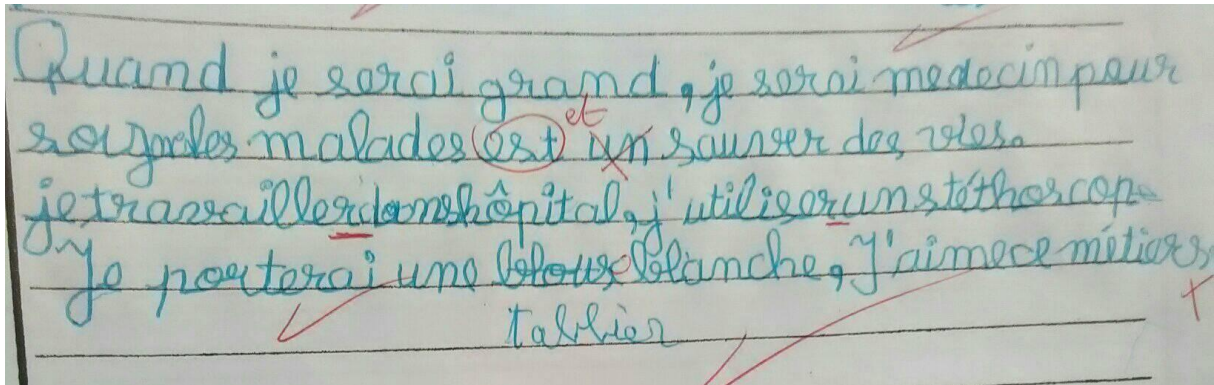 Quand je serai grand, je serai medecin pour
soigneles malades est et un sauver des vies.
je travaillerdanshôpital, j'utiliserunstéthoscope
Je porterai une blouseblanche, J'aimece métiers
tablier